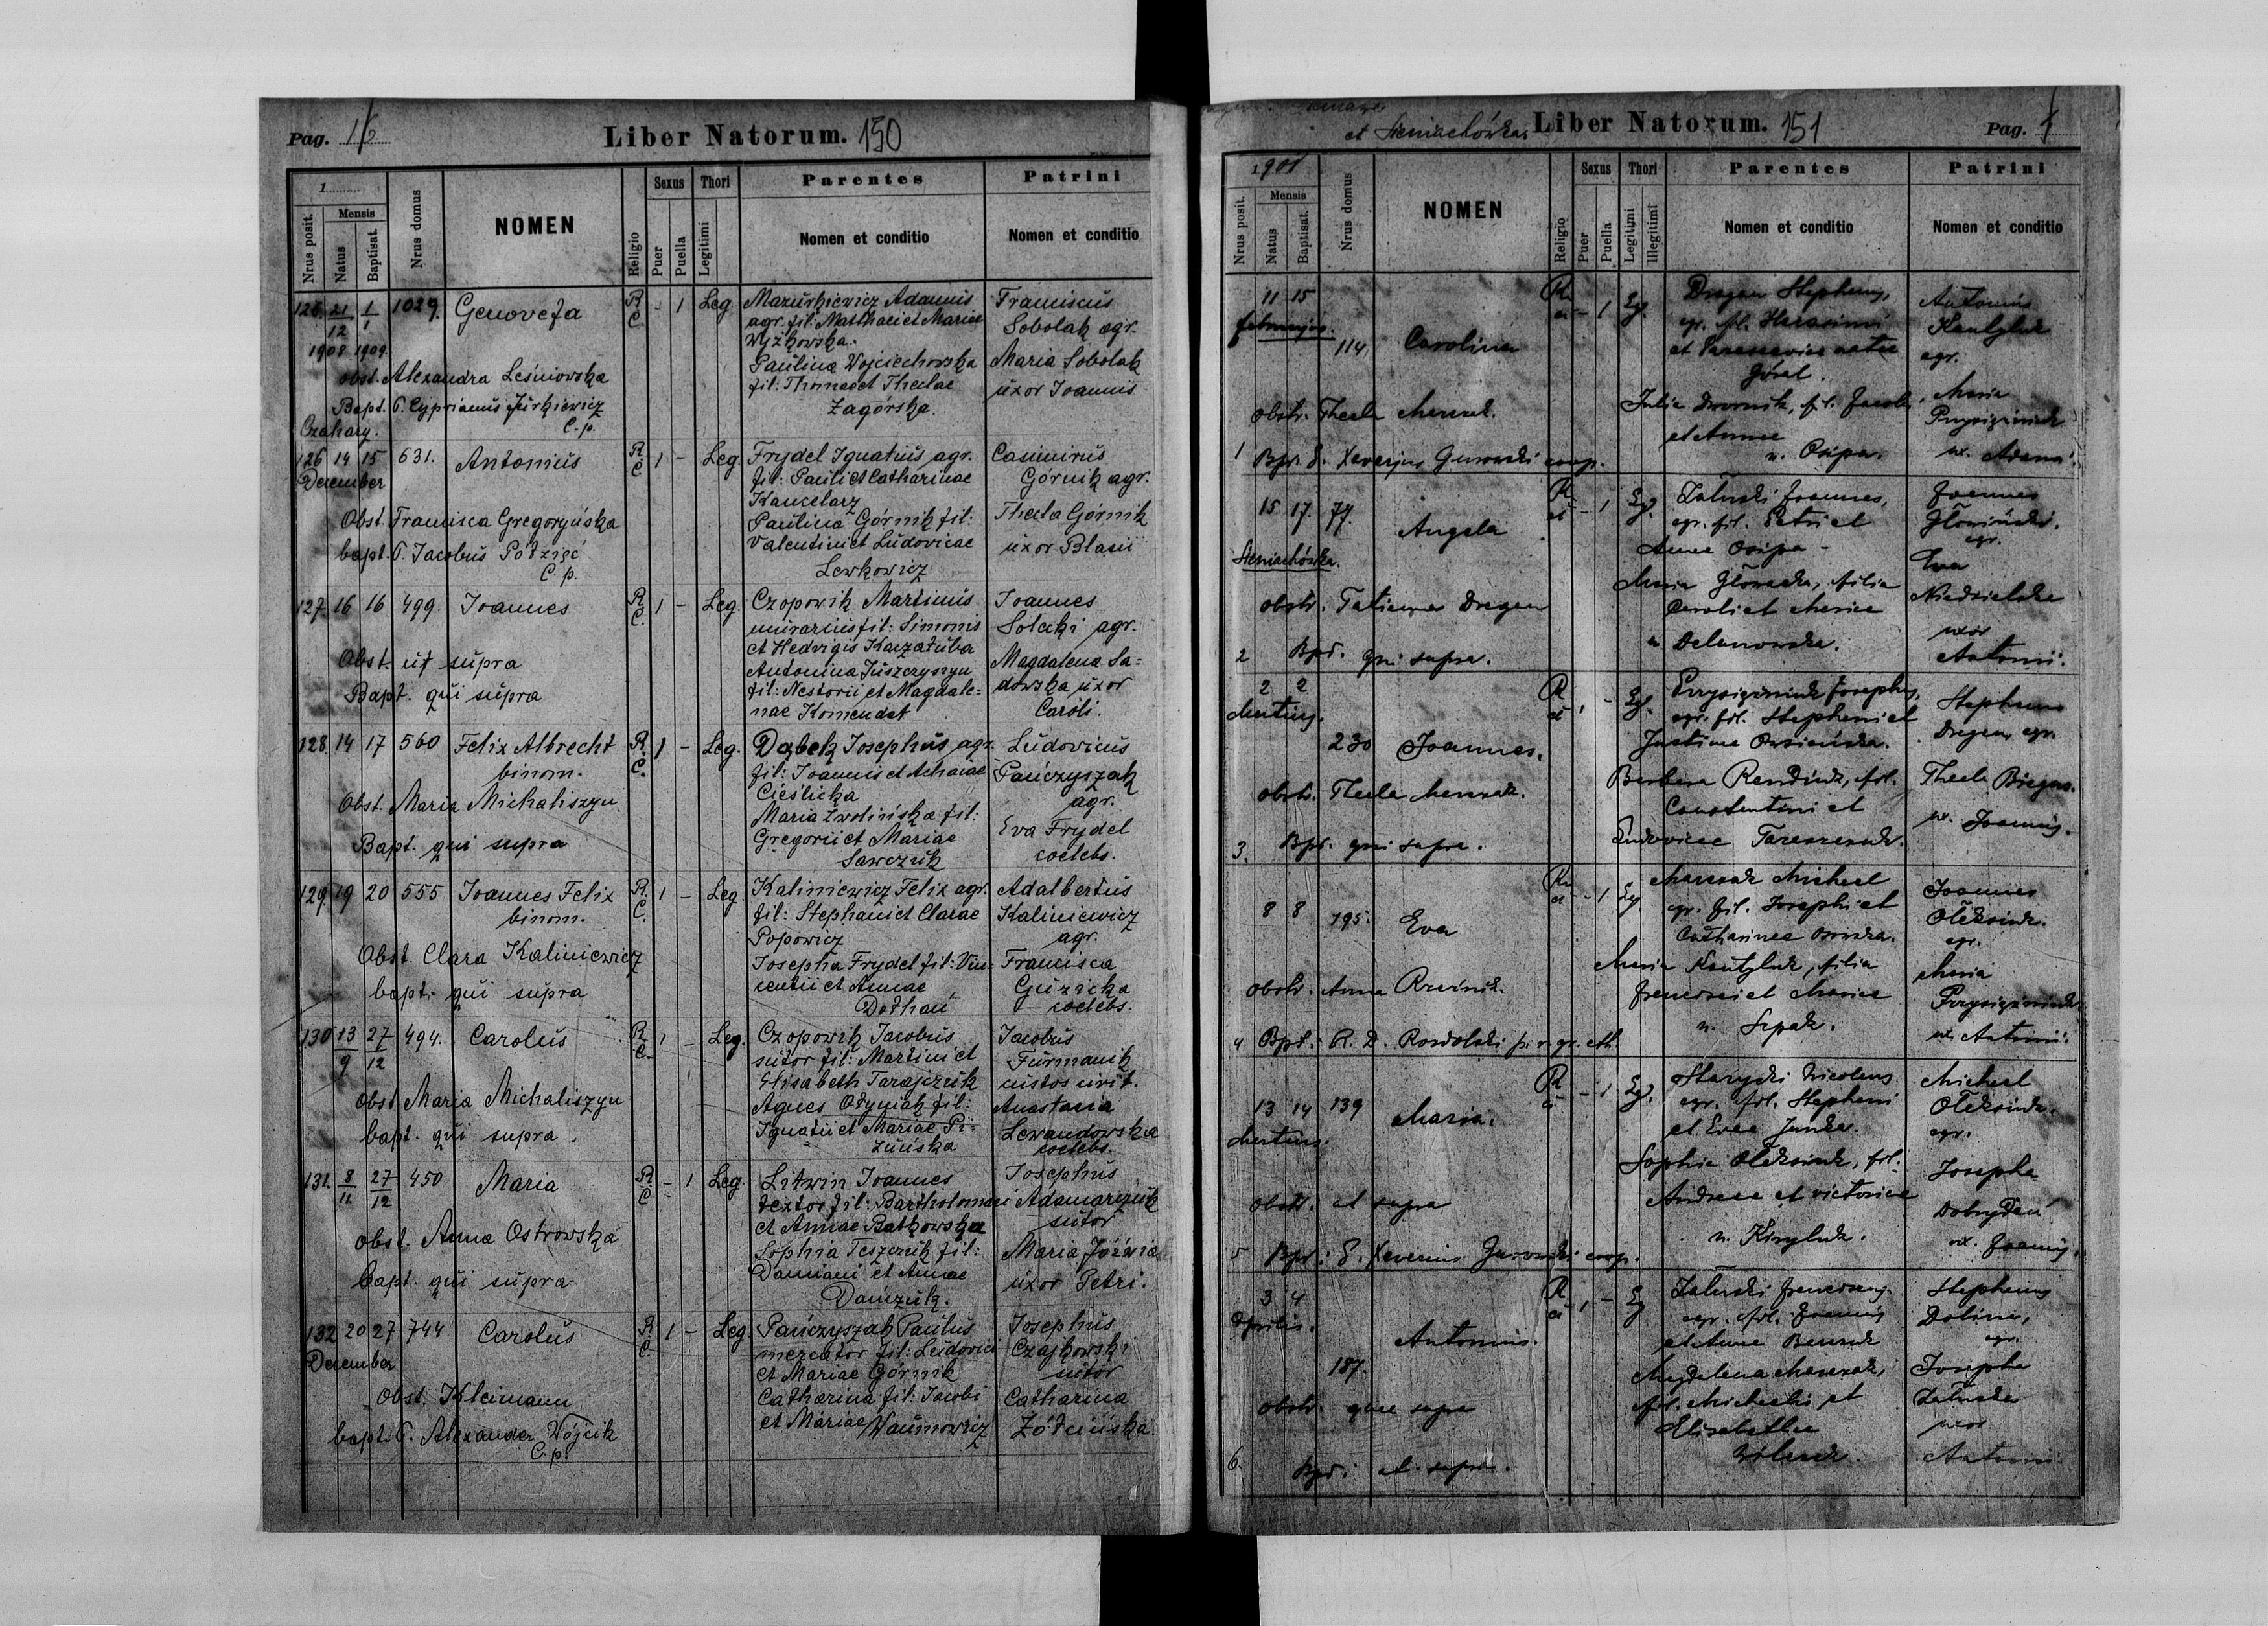 Pag. 16
Liber Natorum. 150
1
Nrus posit.
Mensis
Natus
Baptisat.
Nrus domus
NOMEN
Religio
Sexus
Puer
Puella
Thori
Legitimi
Parentes
Nomen et conditio
Patrini
Nomen et conditio
125. 21/12 1/1 1029. Genovefa R. C. - 1 Leg.
1908 1909.
Obst. Alexandra Leśniowska
Bapt. P. Cyprianus Jurkiewicz
C. p.
Czahary.
Mazurkiewicz Adamus
agr. fil: Matthaei et Mariae
Wyżkowska.
Paulina Wojciechowska
fil: Thomae et Theclae
Zagórska.
Franciscus
Sobolak agr.
Maria Sobolak
uxor Joannis
126 14 15 631. Antonius R. C. 1 - Leg.
December
Obst. Francisca Gregoryńska
bapt. P. Jacobus Półzięć
C. p.
Frydel Ignatius agr.
fil: Pauli et Catharinae
Kancelarz
Paulina Górnik fil:
Valentini et Ludovicae
Lewkowicz
Casimirus
Górnik agr.
Thecla Górnik
uxor Blasii
127 16 16 499. Joannes R. C. 1 - Leg.
Obst. ut supra
Bapt. qui supra
Czopowik Martinus
murarius fil: Simonis
et Hedvigis Kaczałuba
Antonina Juszczyszyn
fil: Nestorii et Magdale-
nae Komendat
Joannes
Solecki agr.
Magdalena Sa-
dowska uxor
Caroli.
128. 14 17 560 Felix Albrecht R. C. 1 - Leg.
binom.
Obst. Maria Michaliszyn
Bapt. qui supra
Dąbek Josephus agr.
fil: Joannis et
Cieślicka
Maria Zwolińska fil:
Gregorii et Mariae
Sawczuk
Ludovicus
Pańczyszak
agr.
Eva Frydel
coelebs.
129. 19 20 555 Joannes Felix R. C. 1 - Leg.
binom.
Obst. Clara Kaliniewicz
bapt. qui supra
Kaliniewicz Felix agr.
fil: Stephani et Clarae
Popowicz
Josepha Frydel fil: Vin-
centii et Annae
Dołhań
Adalbertus
Kaliniewicz
agr.
Francisca
Guzicka
coelebs.
130 13/9 27/12 494. Carolus R. C. 1 - Leg.
Obst. Maria Michaliszyn
bapt. qui supra.
Czopowik Jacobus
sutor fil: Martini et
Elisabeth Tarajczuk
Agnes Ożyniak fil:
Ignatii et Mariae Pi-
luńska
Jacobus
Furmanik
custos civit.
Anastasia
Lewandowska
coelebs.
131. 8/11 27/12 450 Maria R. C. - 1 Leg.
Obst. Anna Ostrowska
bapt. qui supra
Litwin Joannes
textor fil: Bartholomaei
et Annae Bałkowska
Sophia Teszczuk fil:
Damiani et Annae
Dańczuk.
Josephus
Adamarczuk
sutor
Maria Jóźwia
uxor Petri.
132 20 27 744 Carolus R. C. 1 - Leg.
December
Obst. Kleimann
bapt. P. Alexander Wójcik
C. p.
Pańczyszak Paulus
mercator fil: Ludovici
et Mariae Górnik
Catharina fil: Jacobi
et Mariae Naumowicz
Josephus
Czajkowski
sutor
Catharina
Żółcińska
et Sieniachówka.
Liber Natorum. 151
Pag. 1
1908
Nrus posit.
Mensis
Natus
Baptisat.
Nrus domus
NOMEN
Religio
Sexus
Puer
Puella
Thori
Legitimi
Illegitimi
Parentes
Nomen et conditio
Patrini
Nomen et conditio
11 15
februarius.
114 Carolina - 1 Lg.
obstr. Thecla Marczak.
1 Bpt. P. Xaverius Gurowski coop.
Dragan Stephanus,
agr. fil. Harasimi
et Parasceviae natae
Góral.
Julia Dwornik, fil. Jacobi
et Annae
n. Osipa.
Antonius
agr.
Maria
ux. Adami.
15 17 77. Angela - 1 Lg.
Sieniachówka.
obstr. Tatianna Dragan
2 Bpt. qui supra.
Załuski Joannes,
agr. fil. Petri et
Annae Osipa -
Maria Głowacka, filia
Caroli et Mariae
n.
Joannes
Głowiński.
agr.
Eva
Niedzielska
uxor
Antonii.
2 2
Martius.
230 Joannes. 1 - Lg.
obstr. Thecla Marczak.
3. Bpt. qui supra.
Josephus,
agr. fil. Stephani et
Justinae
Barbara fil.
Constantini et
Ludovicae
Stephanus
Dragan agr.
Thecla
ux. Joannis.
8 8 195. Eva - 1 Lg.
obstr. Anna
4 Bpt. R. D. gr. cth.
Marczak Michael
agr. fil. Josephi et
Catharinae
Maria filia
Francisci et Mariae
n. Szpak.
Joannes
Oleksiuk.
agr.
Maria
ux. Antonii.
13 14 139 Maria. - 1 Lg.
Martius.
obstr. ut supra
5 Bpt. P. Xaverius Gurowski coop.
Starycki Nicolaus
agr. fil. Stephani
et Evae
Sophia Oleksiuk, fil.
Andreae et Victoriae
n. Kiryluk.
Michael
Oleksiuk.
agr.
Josepha
ux. Joannis.
3 4
Aprilis.
187. Antonius. 1 - Lg
obstr. quae supra
6. Bpt. ut supra.
Załuski Franciscus
agr. fil. Joannis
et Annae
Magdalena Marczak,
fil. Michaelis et
Elisabethae
Stephanus
Dolina,
agr.
Josepha
Załuska
uxor
Antonii